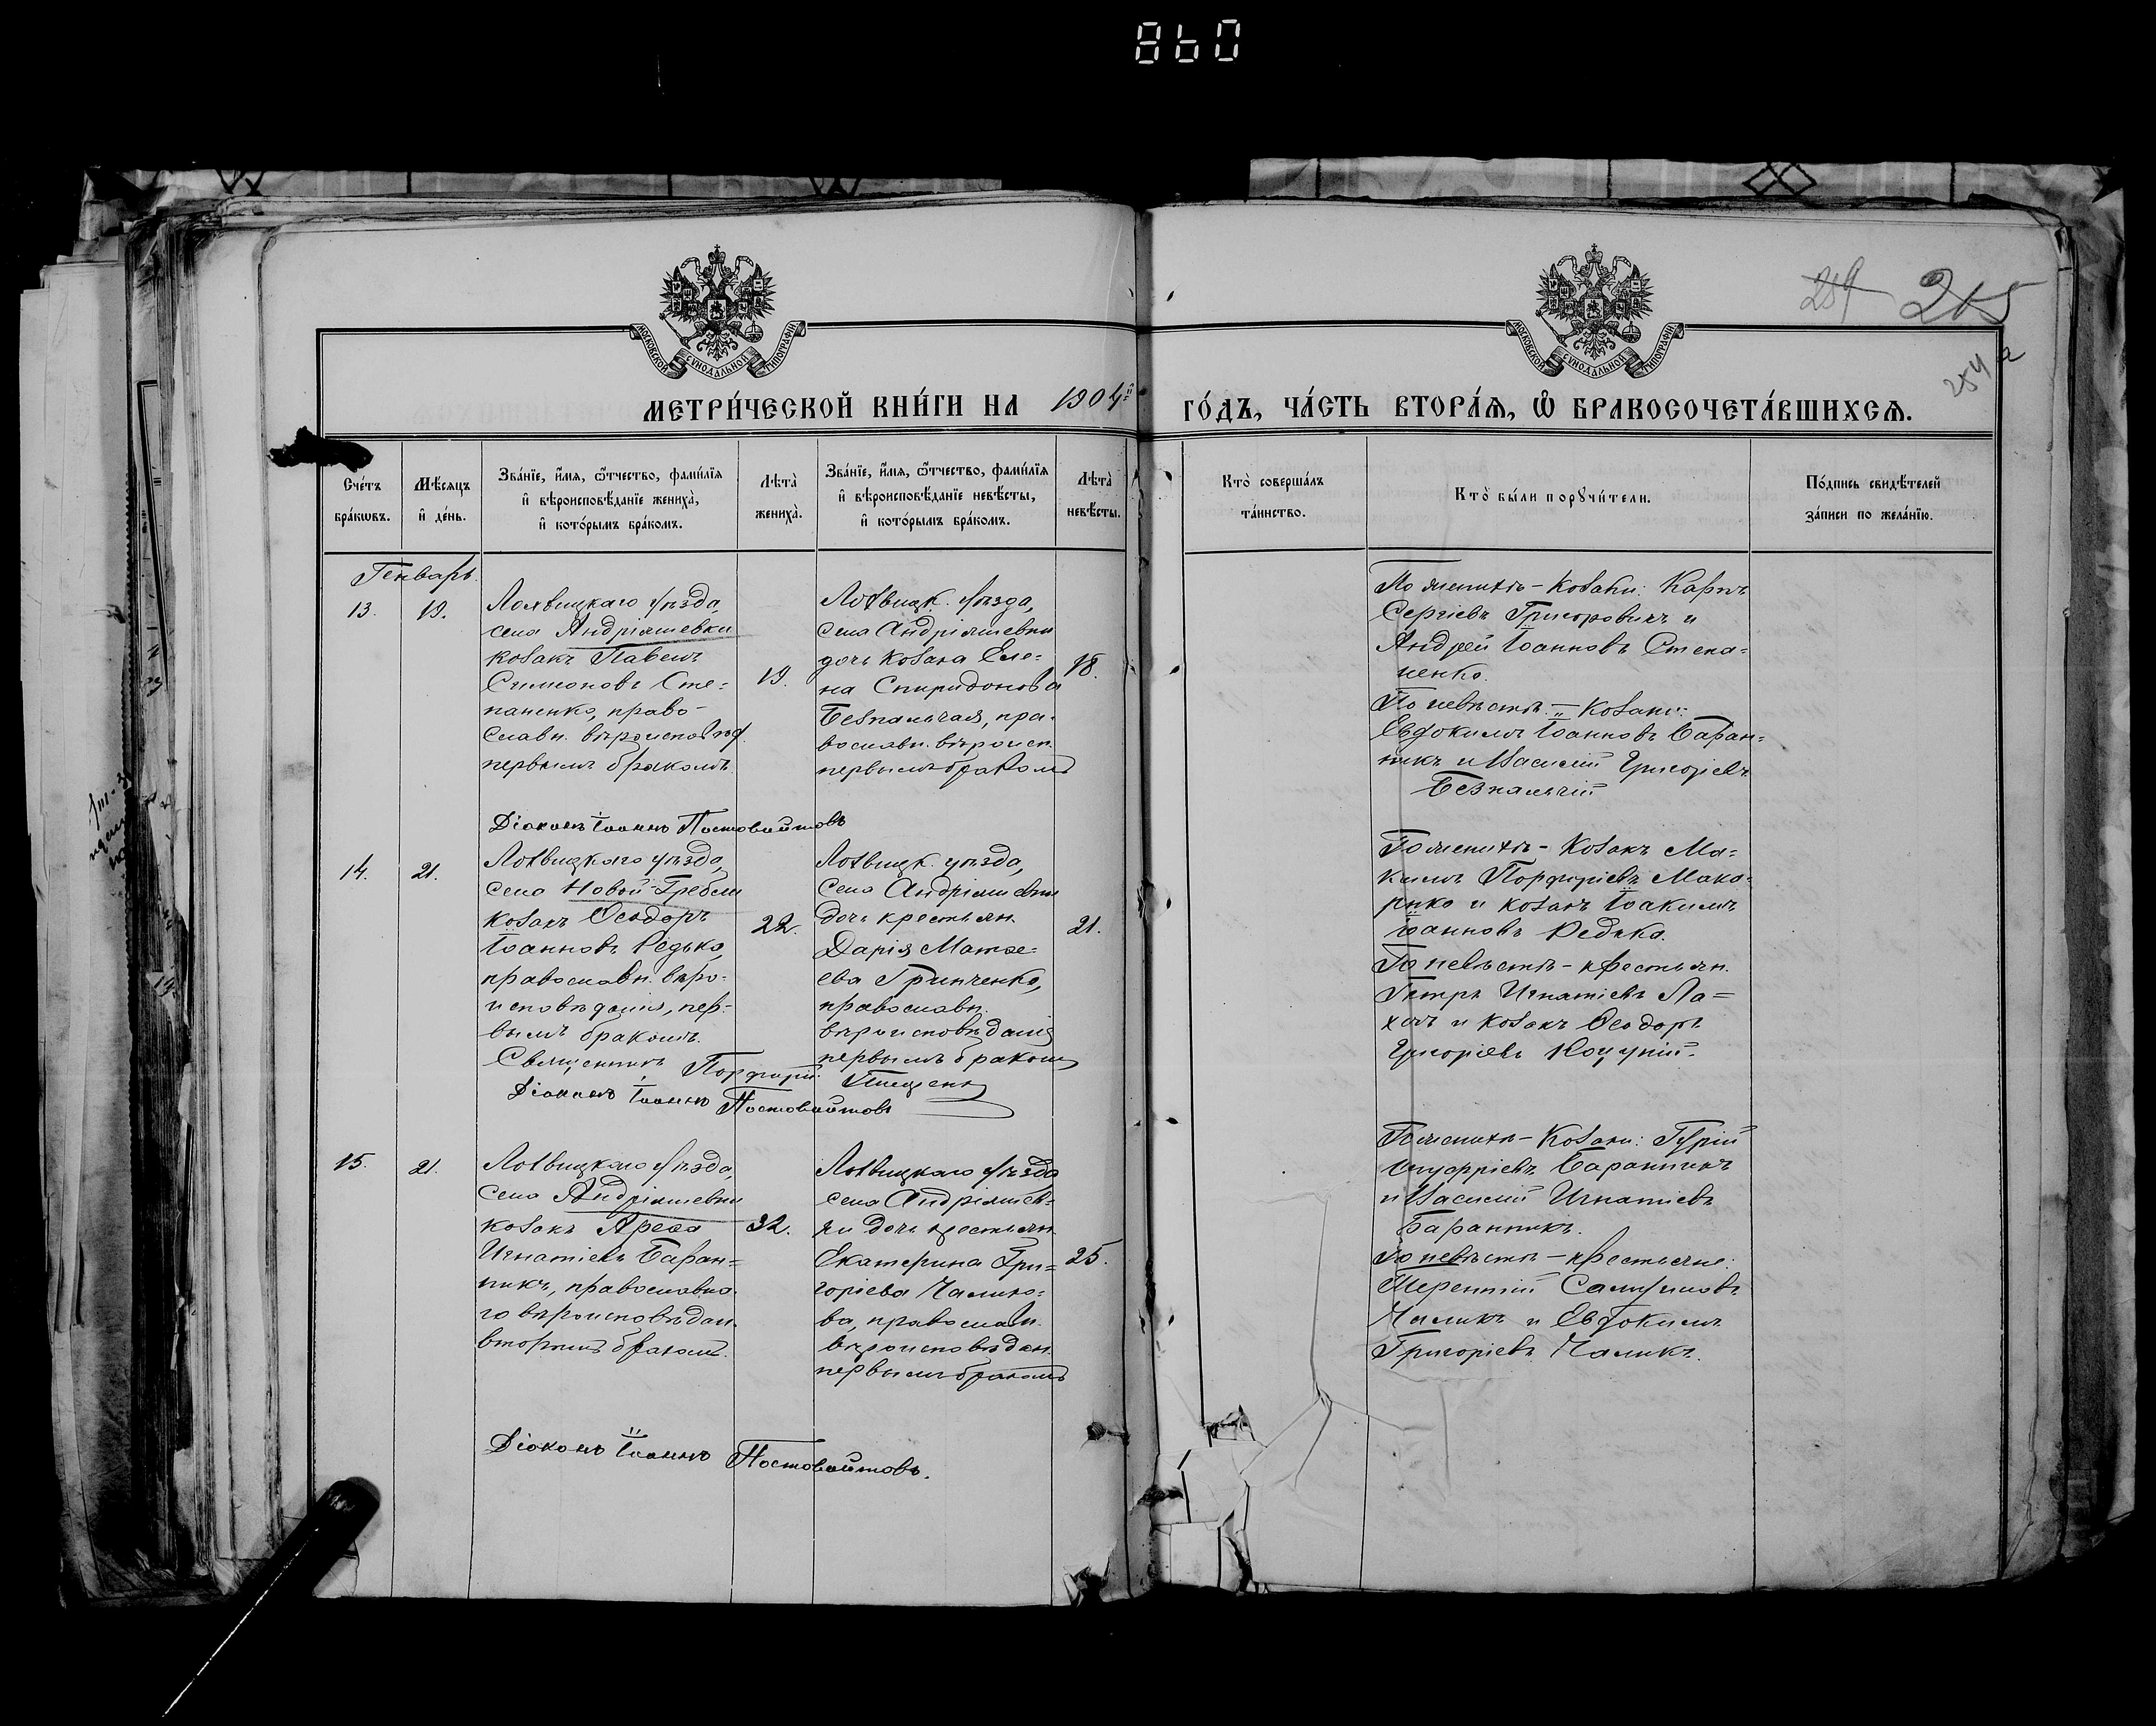 860
259 265
254 а
МОСКОВСКОЙ СѴНОДАЛЬНОЙ ТИПОГРАФІИ
МОСКОВСКОЙ СѴНОДАЛЬНОЙ ТИПОГРАФІИ
МЕТРИ́ЧЕСКОЙ КНИ́ГИ НА 1904й ГО́ДЪ, ЧА́СТЬ ВТОРА́Ѧ, Ѡ҆ БРАКОСОЧЕТА́ВШИХСѦ.
Сче́тъ
бра́кѡвъ.
Мѣ́сяцъ
и҆ де́нь.
Зва́нїе, и҆́мя, ѻ҆́тчество, фами́лїя
и҆ вѣроисповѣ́данїе жениха̀,
и҆ кото́рымъ бра́комъ.
Лѣта̀
жениха̀.
Зва́нїе, и҆́мя, ѻ҆́тчество, фами́лїя
и҆ вѣроисповѣ́данїе невѣ́сты,
и҆ кото́рымъ бра́комъ.
Лѣта̀
невѣ́сты.
Кто̀ соверша́лъ
та́инство.
Кто̀ бы́ли порꙋчи́тели.
По́дпись свидѣ́телей
за́писи по жела́нїю.
Генварь.
13.
19.
Лохвицкаго уѣзда,
села Андріяшевки
козакъ Павелъ
Симеоновъ Сте=
паненко, право-
славн. вѣроисповѣд.
первымъ бракомъ.
19.
Лохвицк. уѣзда,
села Андріяшевки
дочь козака Еле=
на Спиридонова
Безпальчая, пра-
вославн. вѣроисп.
первымъ бракомъ
18.
По женихѣ - козаки: Карпъ
Сергіевъ Григоровичъ и
Андрей Іоанновъ Степа=
ненко.
По невѣстѣ - козаки:
Евдокимъ Іоанновъ Баран=
никъ и Василій Григоріевъ
Безпальчій
Діаконъ Іоаннъ Постовойтовъ
14.
21.
Лохвицкаго уѣзда,
села Новой-Гребли
козакъ Ѳеодоръ
Іоанновъ Редько,
православн. вѣро-
исповѣданія, пер-
вымъ бракомъ.
22.
Лохвицк. уѣзда,
села Андріяшевки
дочь крестьян.
Дарія Матѳе=
ева Гринченко,
православн.
вѣроисповѣданія
первымъ бракомъ
21.
По женихѣ - козакъ Ма=
ксимъ Порфиріевъ Мака=
ренко и козакъ Іоакимъ
Іоанновъ Редька.
По невѣстѣ - крестьян.
Петръ Игнатіевъ Ла=
и козакъ Ѳеодоръ
Григоріевъ
Священникъ Порфирій
Діаконъ Іоаннъ Постовойтовъ
15.
21.
Лохвицкаго уѣзда,
села Андріяшевки
козакъ Арефа
Игнатіевъ Баран=
никъ, православна-
го вѣроисповѣдан.
вторымъ бракомъ.
32.
Лохвицкаго уѣзда
села Андріяшев-
ки дочь крестьян.
Екатерина Гри=
горіева Чалико=
ва, православн.
вѣроисповѣдан.
первымъ бракомъ
25.
По женихѣ - козаки: Гурій
Онуфріевъ Баранникъ
и Василій Игнатіевъ
Баранникъ.
По невѣстѣ - крестьяне:
Терентій Самуиловъ
Чаликъ и Евдокимъ
Григоріевъ Чаликъ.
Діаконъ Іоаннъ Постовойтовъ.